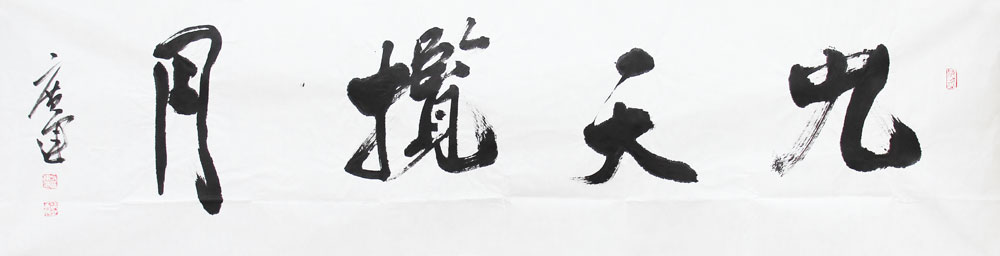 九天攬月